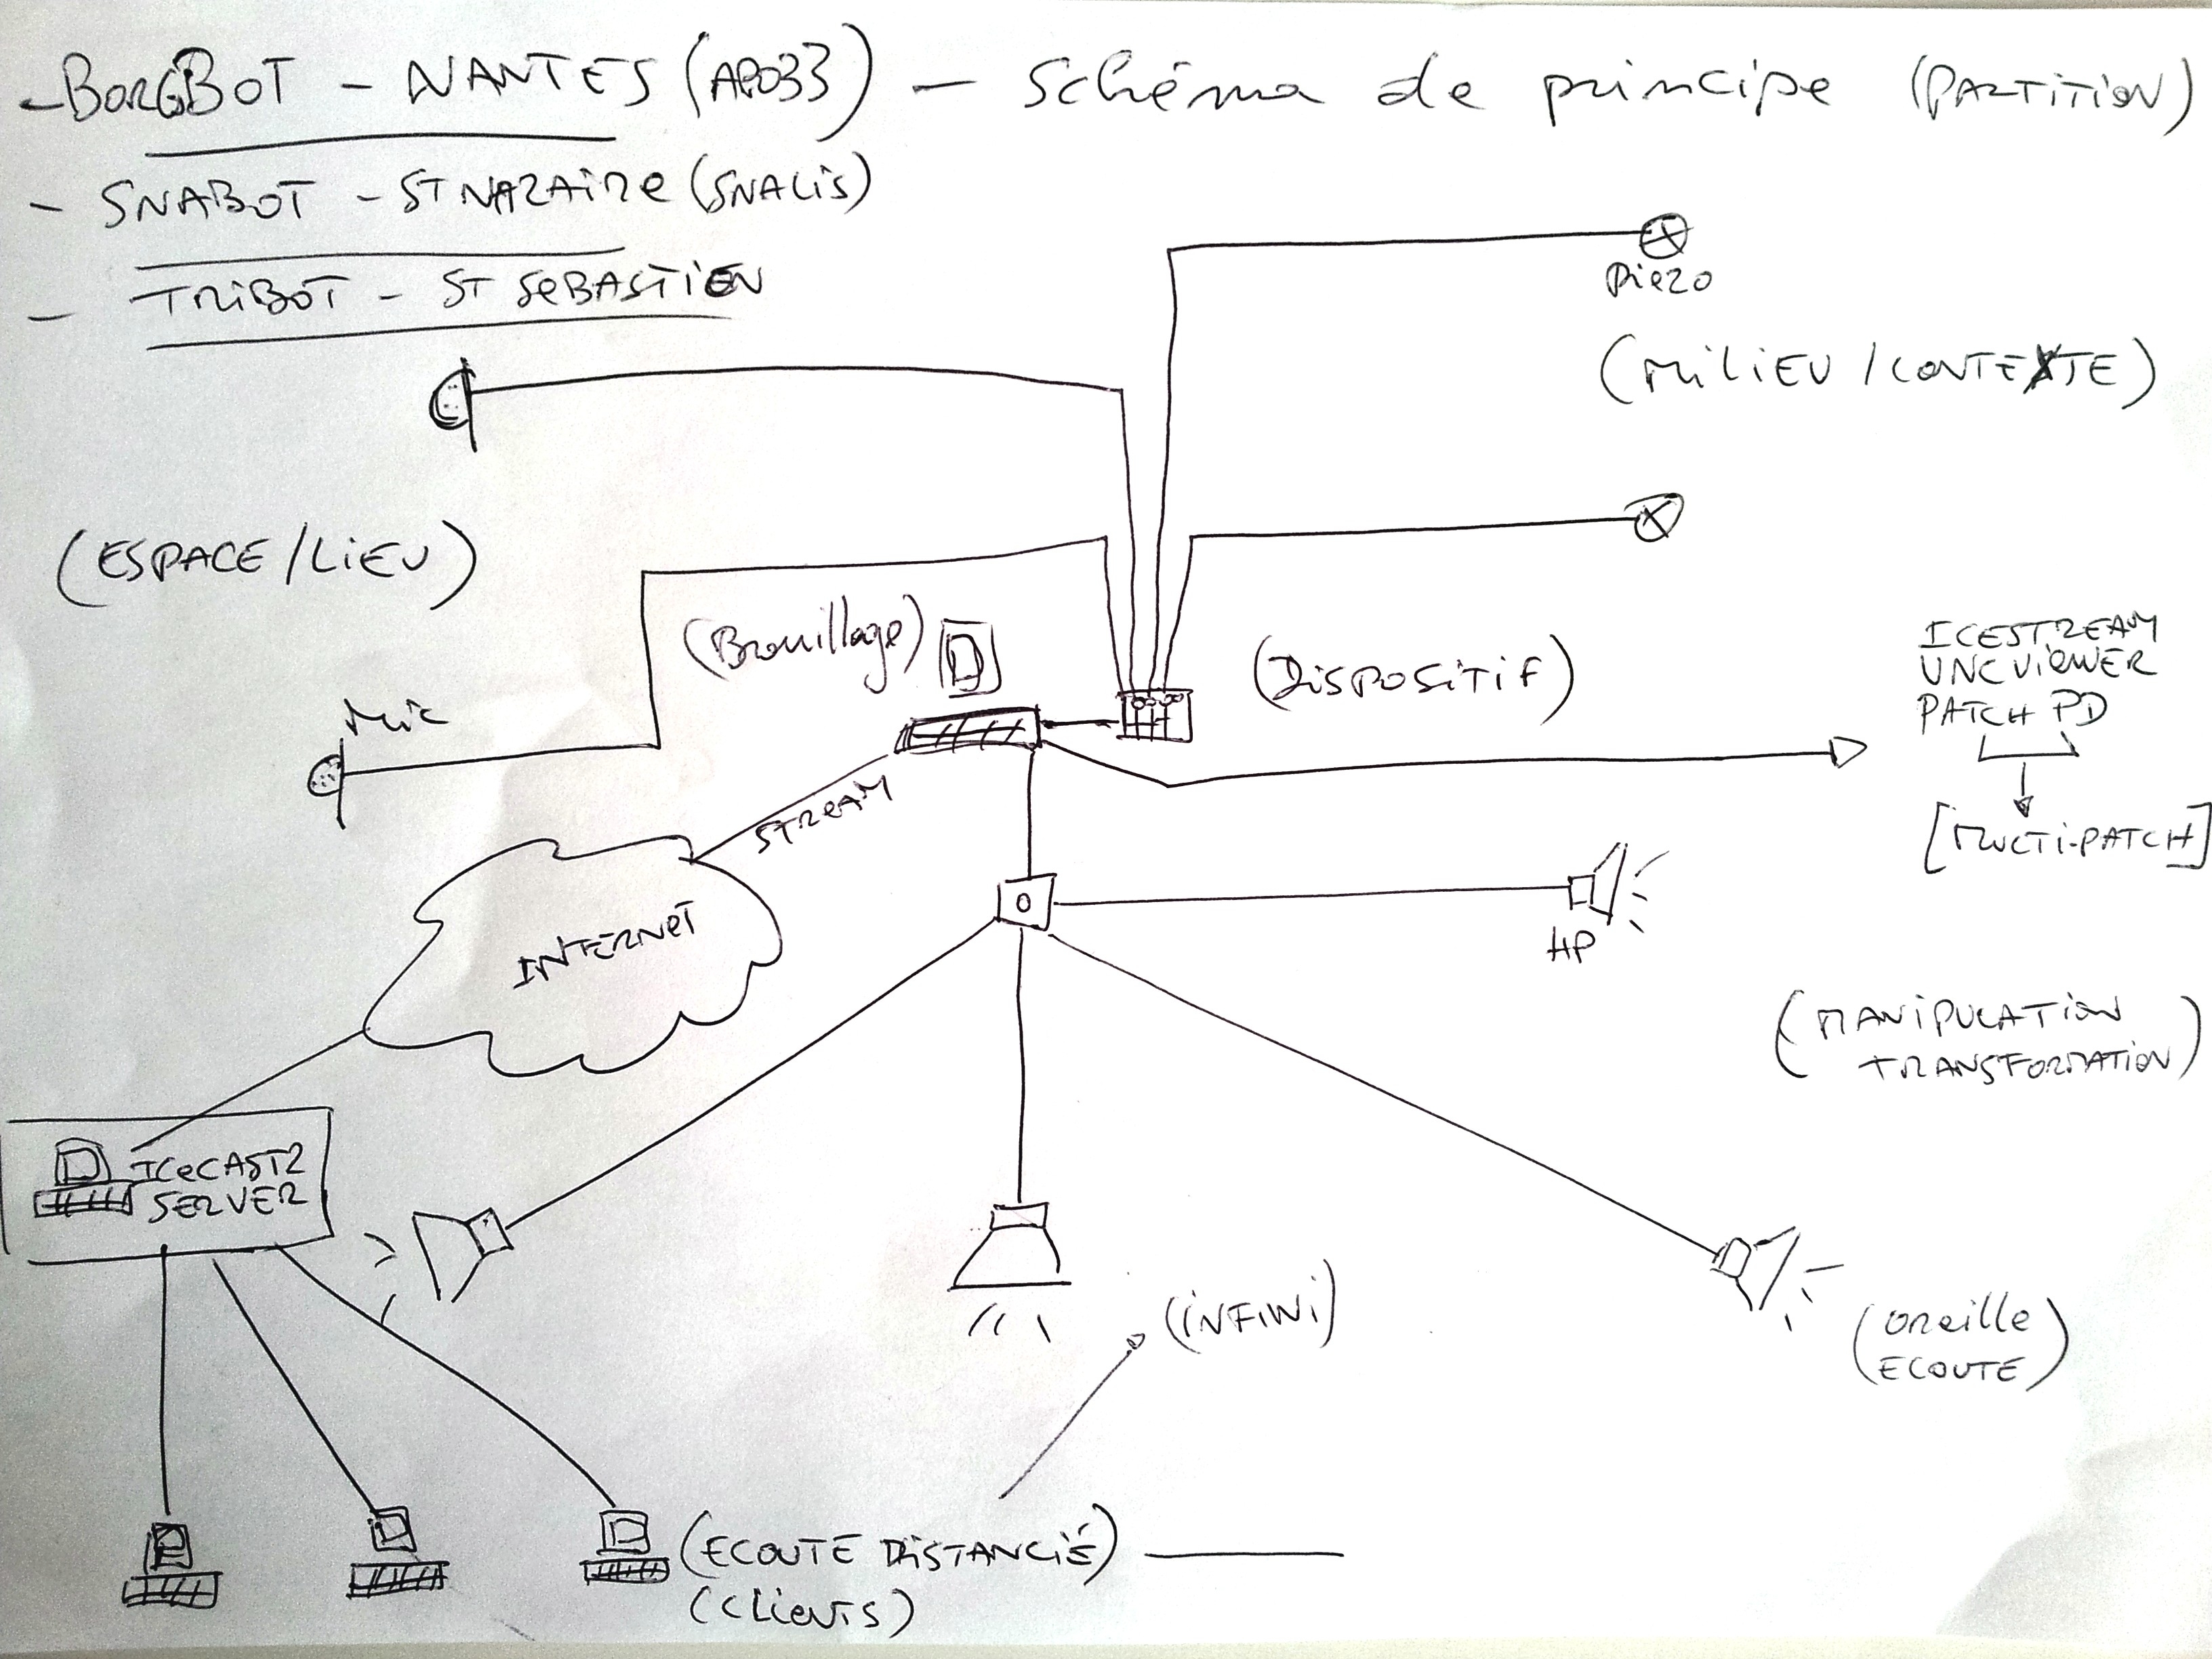 - BORGBOT - NANTES (APO33) - Schéma de principe (PARTITION)
- SNABOT - ST NAZAIRE (SNALIS)
- TRIBOT - ST SEBASTIEN
Piezo
(MILIEU / CONTEXTE)
(ESPACE / LIEU)
(Brouillage)
(DISPOSITIF)
ICESTREAM
VNC VIEWER
PATCH PD
[MULTI-PATCH]
Mic
STREAM
INTERNET
HP
(MANIPULATION
TRANSFORMATION)
ICECAST2
SERVER
(INFINI)
(oreille
ECOUTE)
(ECOUTE DISTANCIÉ)
(CLIENTS)